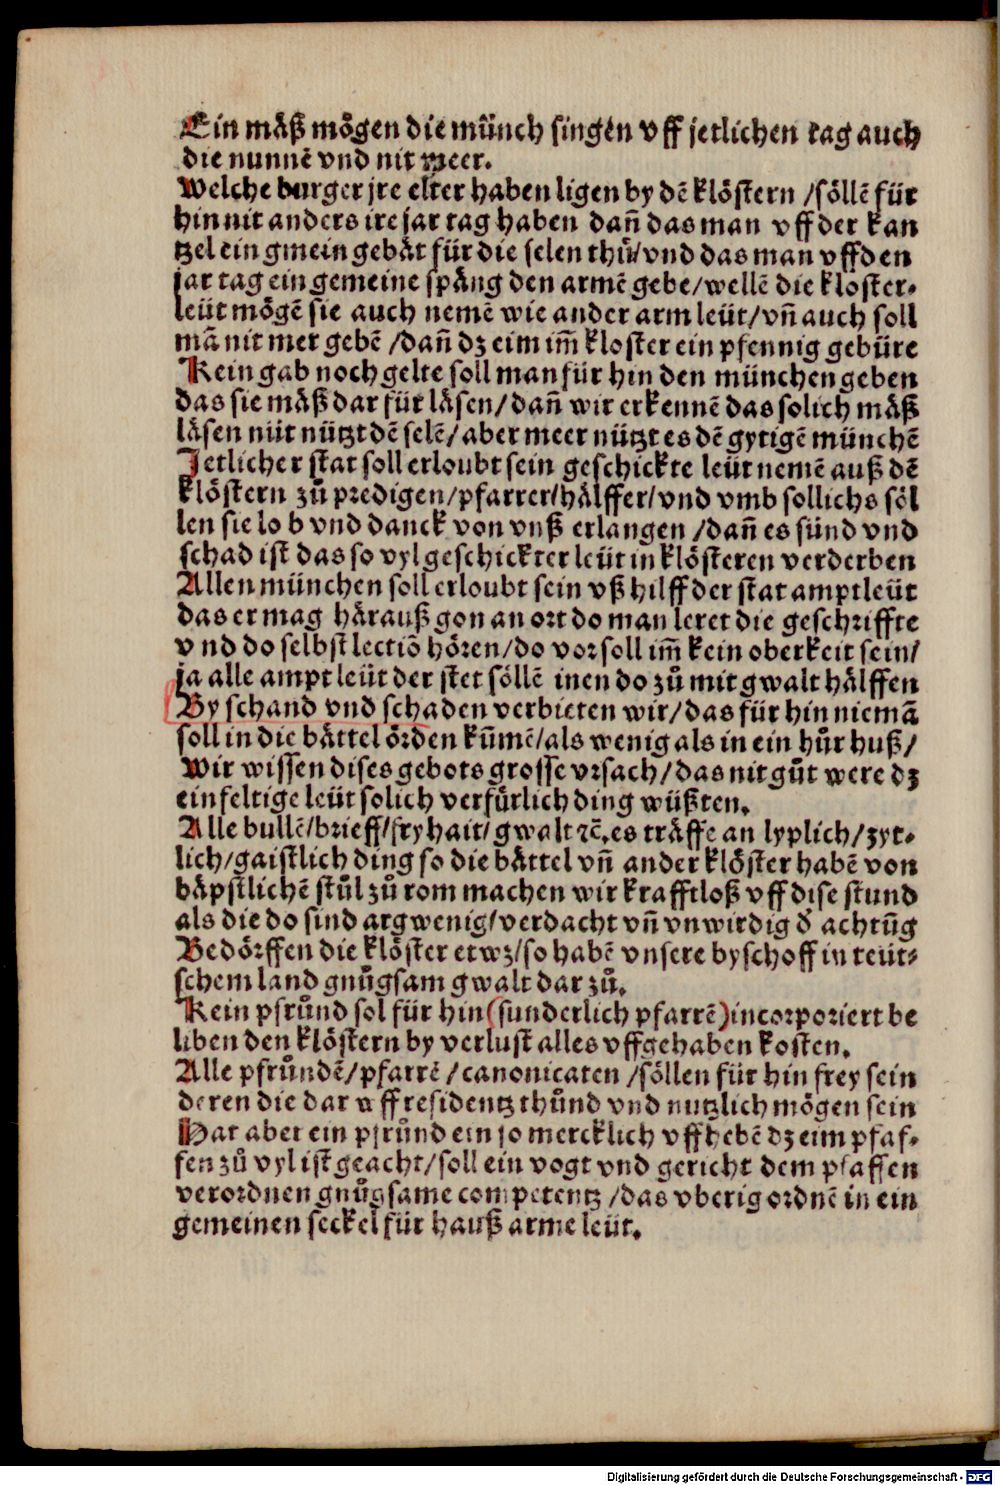 Ein mäß mögen die münch singen vff jetlichen tag auch
die nunnē vnd nit meer.
Welche burger jre elter haben ligen by dē klöstern /söllē für
hin nit anders ire jar tag haben dañ das man vff der kan
tzel ein gmein gebät für die selen thů/vnd das man vff den
jar tag ein gemeine späng den armē gebe/wellē die kloster⸗
leüt mögē sie auch nemē wie ander arm leüt/vñ auch soll
mā nit mer gebē /dañ dz eim im̄ kloster ein pfennig gebüre
Kein gab noch gelte soll man für hin den münchen geben
das sie mäß dar für läsen/dañ wir erkennē das solich mäß
läsen nüt nützt dē selē/aber meer nützt es dē gytigē münchē
Jetlicher stat soll erloubt sein geschickte leüt nemē auß dē
klöstern zů predigen/pfarrer/hälffer/vnd vmb sollichs söl
len sie lob vnd danck von vnß erlangen /dañ es sünd vnd
schad ist das so vyl geschickter leüt in klösteren verderben
Allen münchen soll erloubt sein vß hilff der stat amptleüt
das er mag härauß gon an ort do man leret die geschriffte
vnd do selbst lectiō hören/do vor soll im̄ kein oberkeit sein/
ja alle ampt leüt der stet söllē inen do zů mit gwalt hälffen
By schand vnd schaden verbieten wir/das für hin niemā
soll in die bättel örden kūmē/als wenig als in ein hůr huß/
Wir wissen dises gebots grosse vrsach/das nit gůt were dz
einfeltige leüt solich verfürlich ding wüßten.
Alle bullē/brieff/fryhait/gwalt ꝛc̄.es träffe an lyplich/zyt⸗
lich/gaistlich ding so die bättel vñ ander klöster habē von
bäpstlichē stůl zů rom machen wir krafftloß vff dise stund
als die do sind argwenig/verdacht vñ vnwirdig ð achtūg
Bedörffen die klöster etwz/so habē vnsere byschoff in teüt⸗
schem land gnůgsam gwalt dar zů.
Kein pfrůnd sol für hin (sunderlich pfarrē)incorporiert be
liben den klöstern by verlust alles vffgehaben kosten.
Alle pfründē/pfarrē/canonicaten /söllen für hin frey sein
deren die dar vff residentz thůnd vnd nutzlich mögen sein
Hat aber ein pfründ ein so mercklich vffhebē dz eim pfaf⸗
fen zů vyl ist geacht/soll ein vogt vnd gericht dem pfaffen
verordnen gnůgsame competentz /das vberig ordnē in ein
gemeinen seckel für hauß arme leüt.
Digitalisierung gefördert durch die Deutsche Forschungsgemeinschaft - DFG